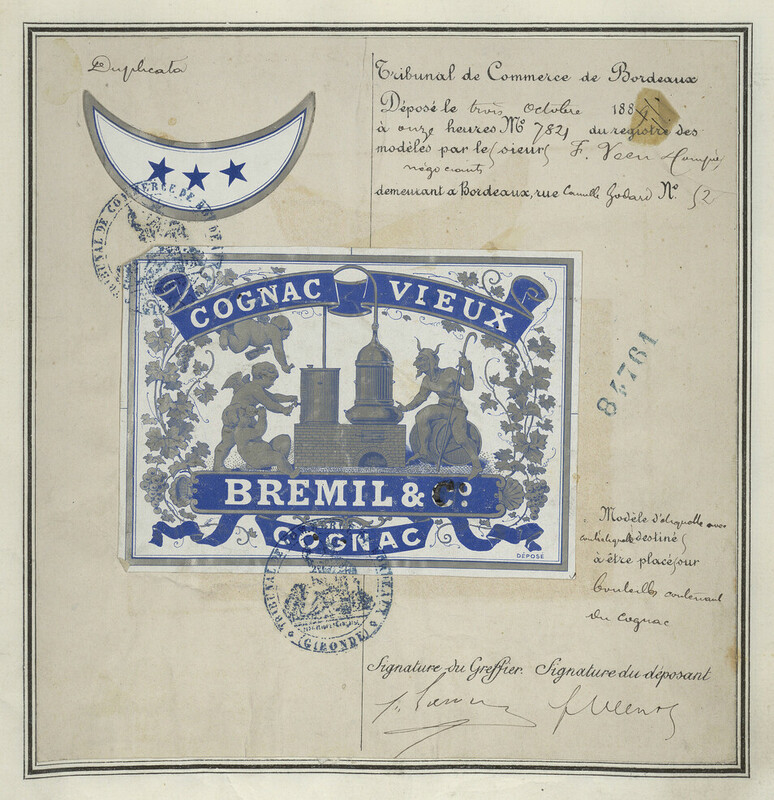 Duplicata
Tribunal de Commerce de Bordeaux
Déposé le trois octobre 188
à onze heures No 7821 du registre des
modèles par le sieur F. Compie
négociants
demeurant à Bordeaux, rue Camille Godard No. 52
TRIBUNAL DE COMMERCE DE BORDEAUX
COGNAC VIEUX
BREMIL & Co.
COGNAC
DÉPOSÉ
84761
Modèle d'étiquette avec
destiné
à être placé sur
bouteilles contenant
du Cognac
TRIBUNAL DE COMMERCE DE BORDEAUX
(GIRONDE)
Signature du Greffier. Signature du déposant